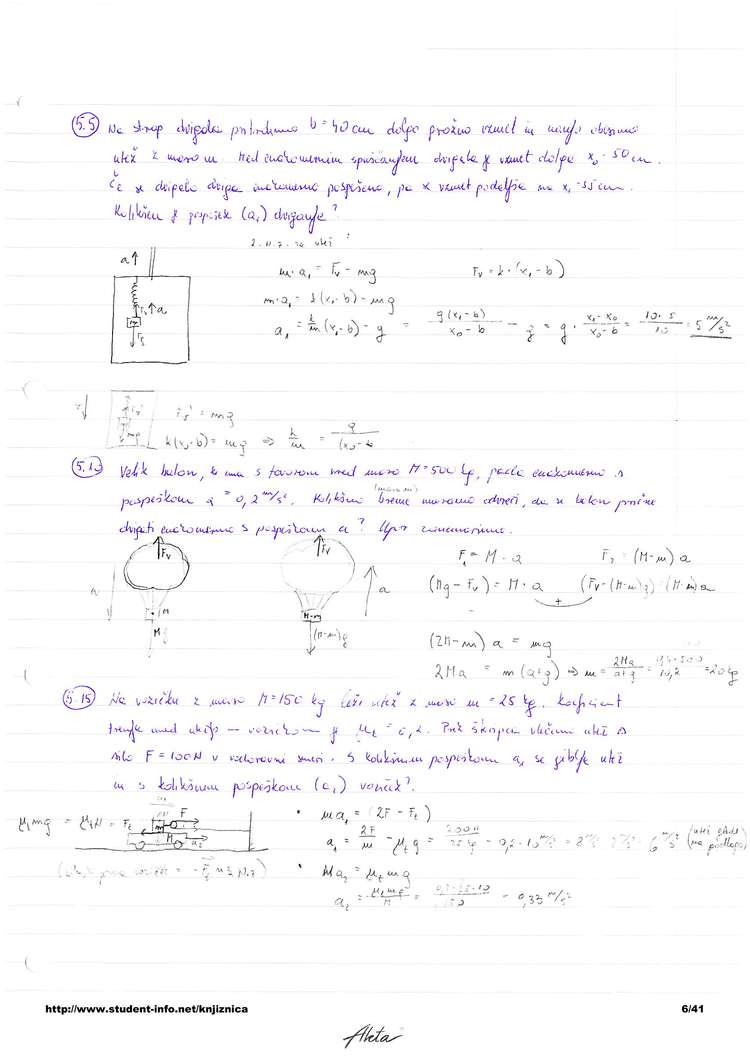 5.5 Na strop dvigala pritrdimo b = 40 cm dolgo prožno vzmet in nanjo obesimo
utež z maso m. Med enakomernim spuščanjem dvigala je vzmet dolga x₀ = 50 cm.
Če se dvigalo dviga enakomerno pospešeno, pa se vzmet podaljša na x₁ = 55 cm.
Kolikšen je pospešek (a₁) dviganja?
2. N. Z. za utež:
a↑ m·a₁ = Fᵥ - mg Fᵥ = k·(x₁-b)
m·a₁ = k(x₁-b) - mg
a₁ = k/m (x₁-b) - g = g(x₁-b)/(x₀-b) - g = g · (x₁-x₀)/(x₀-b) = 10·5/10 = 5 m/s²
Fᵥ' = mg
k(x₀-b) = mg ⇒ k/m = g/(x₀-b
5.10 Velik balon, ki ima s tovorom vred maso M = 500 kg, pada enakomerno s
pospeškom a = 0,2 m/s². Kolikšno breme moramo odvreči, da se balon prične
dvigati enakomerno s pospeškom a? Upor zanemarimo.
F₁ = M·a F₂ = (M-m)a
(Mg - Fᵥ) = M·a (Fᵥ-(M-m)g) = (M-m)a
+
(2M-m) a = mg
2Ma = m(a+g) ⇒ m = 2Ma/(a+g) = 0,4·500/10,2 = 20 kg
Fᵥ M Mg Fᵥ M-m (M-m)g a
5.15 Na vozičku z maso M = 150 kg leži utež z maso m = 25 kg. Koeficient
trenja med utežjo - vozičkom je μₜ = 0,2. Prek škripca vlečemo utež s
silo F = 100N v vodoravni smeri. S kolikšnim pospeškom a₁ se giblje utež
in s kolikšnim pospeškom (a₂) voziček?
μₜmg = μₜN = Fₜ F m M a₂
• ma₁ = (2F - Fₜ)
a₁ = 2F/m - μₜg = 200N/25kg - 0,2·10 m/s² = 8 m/s² - 2 m/s² = 6 m/s² (utež glede na podlago)
• Ma₂ = μₜmg
a₂ = μₜmg/M = 0,2·25·10/150 = 0,33 m/s²
http://www.student-info.net/knjiznica 6/41
Aleta